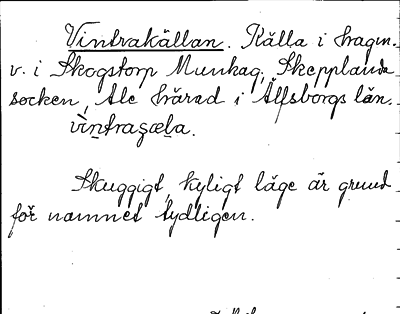 Vintrakällan. Källa i hagm.
v. i Skogstorp Munkag, Skepplanda
socken, Ale härad i Älfsborgs län.
Skuggigt, kyligt läge är grund
för namnet tydligen.